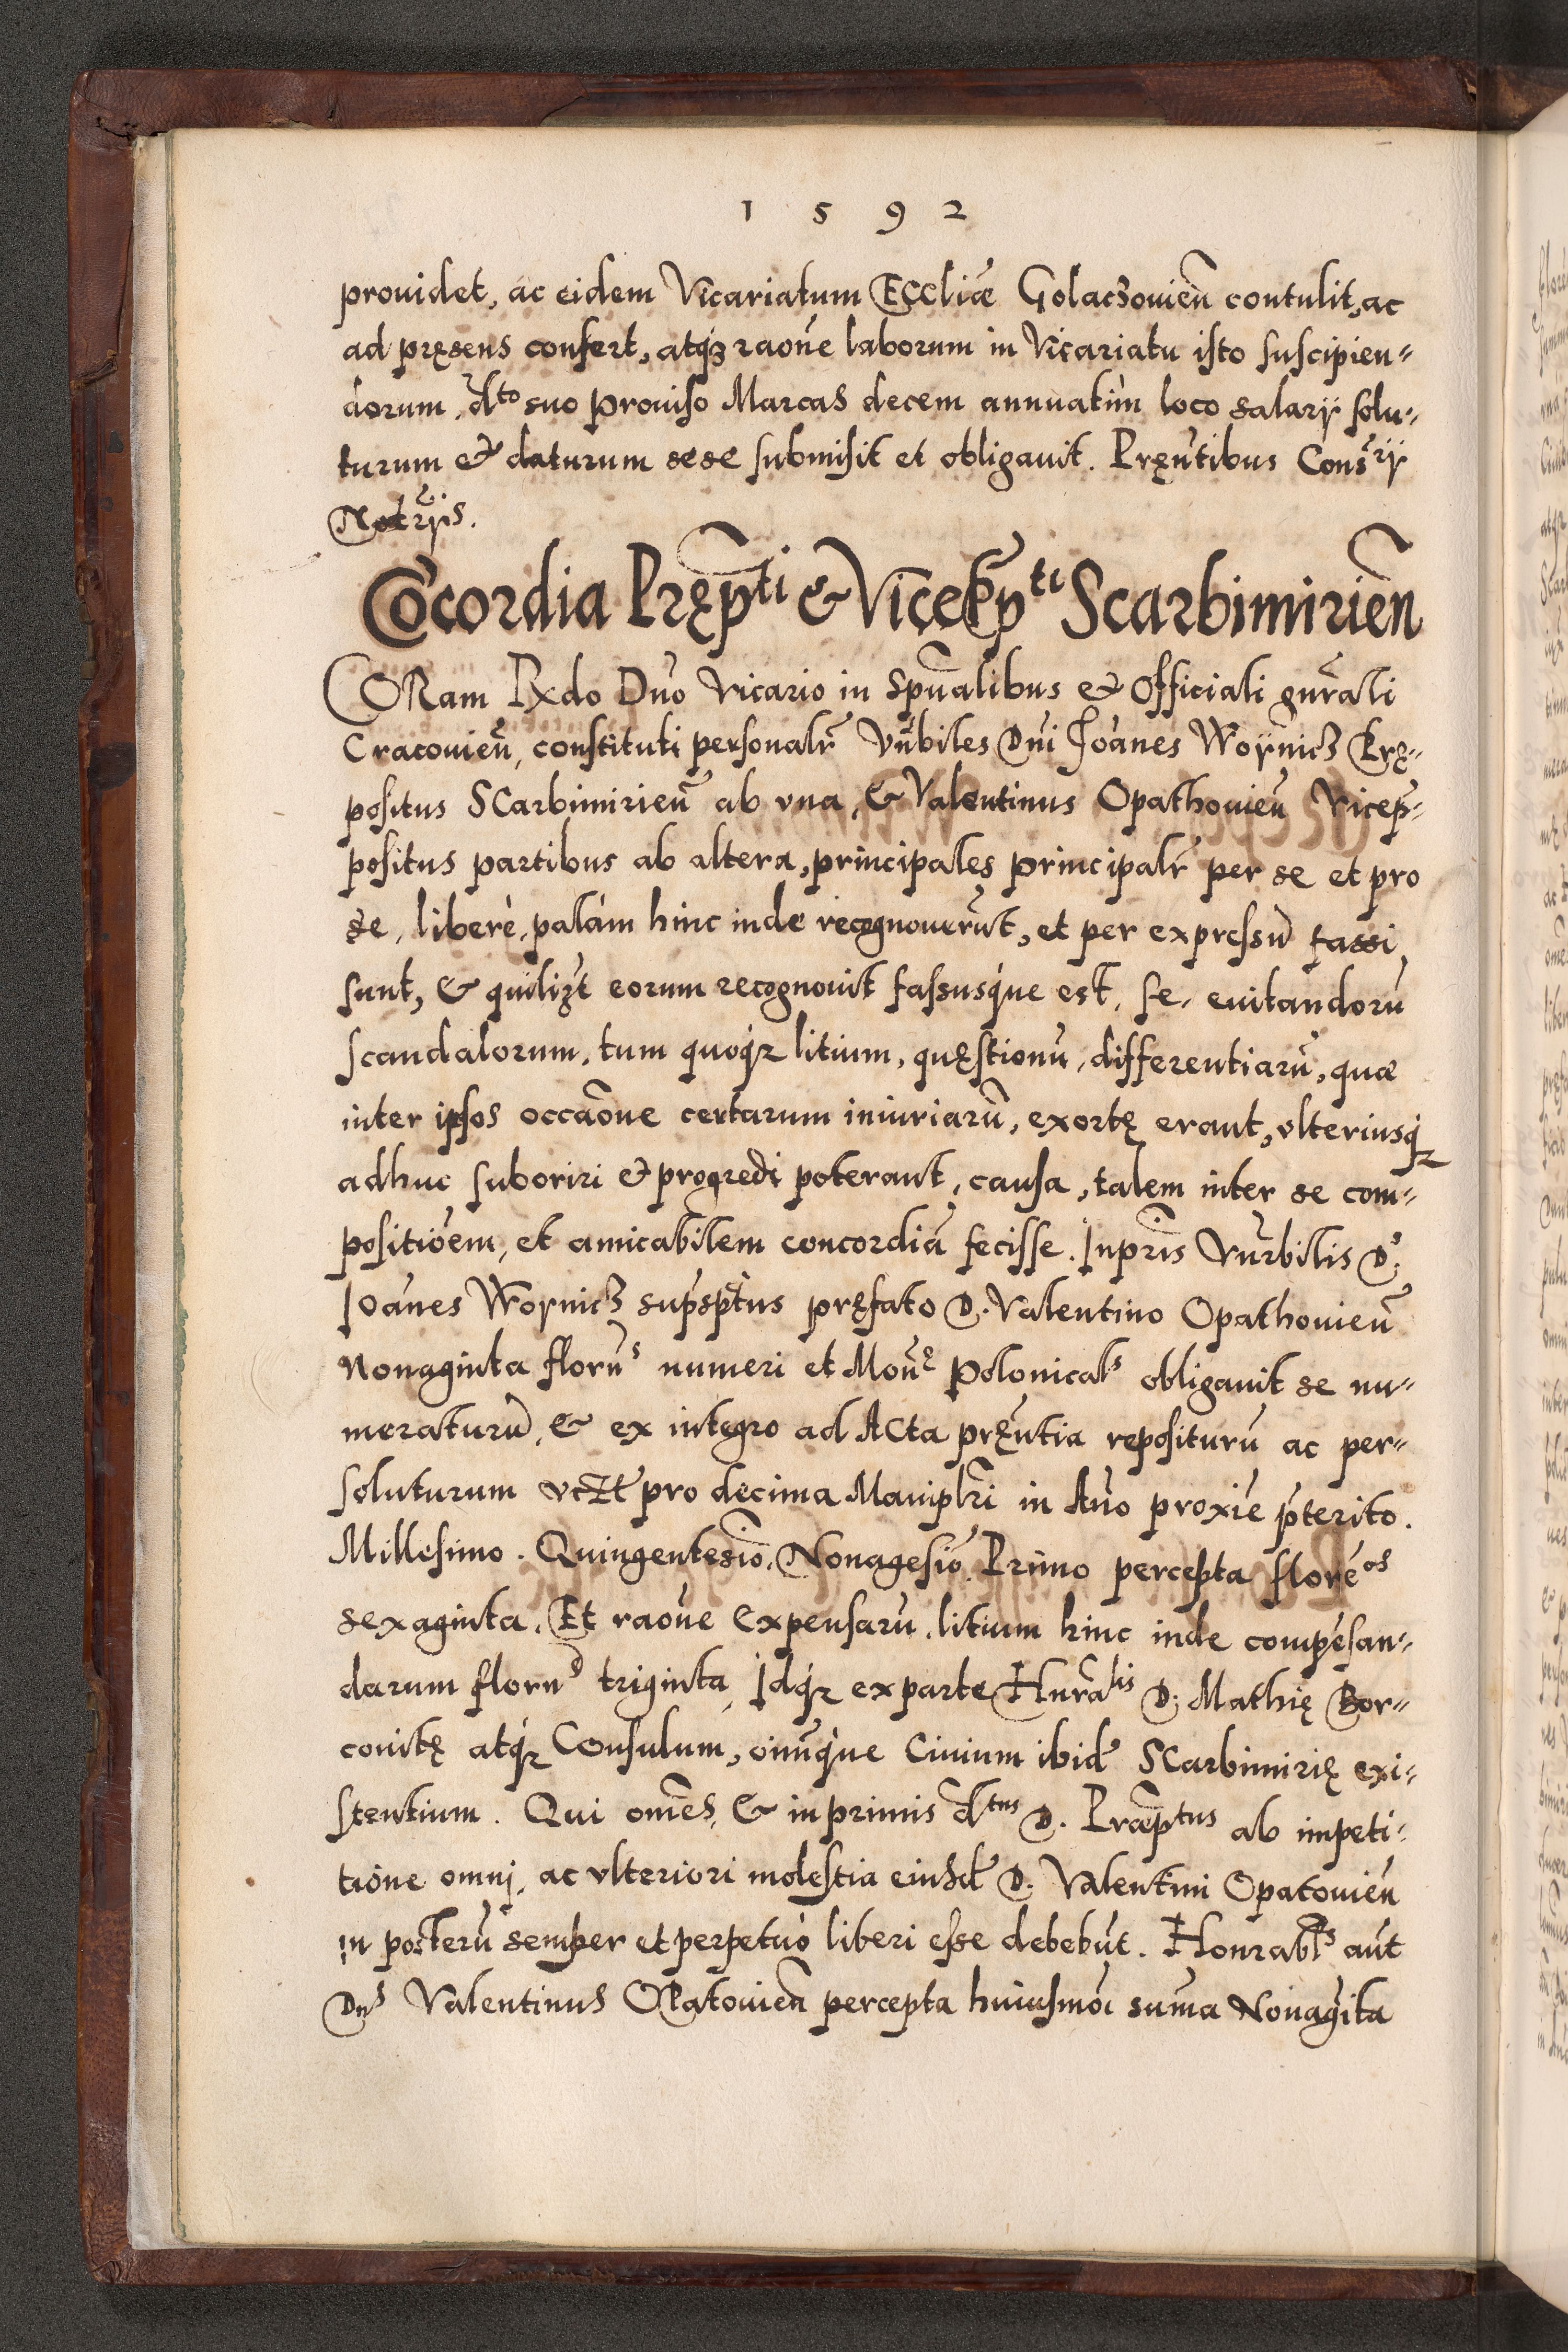 1592
prouidet, ac eidem Vicariatum Eccliæ Golaczouien̄ contulit, ac
ad pręsens confert, atqȝ raōne laborum in Vicariatu isto suscipien⸗
dorum, d̄to suo prouiso Marcas decem annuatim loco salarij solu⸗
turum & daturum sese submisit et obligauit. Pręn̄tibus Cons̄rij
Not̄rijs.
Cōcordia Pręp̄ti & Vicep̄ti Scarbimirien̄
CORam Rx̄do Dn̄o Vicario in Spūalibus & Officiali gn̄rali
Cracouien̄, constituti personalr̄ Vn̄biles Dn̄i Joānes Woÿnicz Prę⸗
positus SCarbimirien̄ ab vna, & Valentinus Opathouien̄ Vicep̄⸗
positus partibus ab altera, principales principalr̄ per se et pro
se, liberè, palàm hinc inde recognouerūt, et per expressū fassi
sunt, & quilizt eorum recognouit fassusq́ue est, se, euitandorū
scandalorum, tum quoqȝ litium, quęstionū, differentiarū, quæ
inter ipsos occaōne certarum iniuriarū, exortę erant, vlteriusqȝ
adhuc suboriri & progredi poterant, causa, talem inter se com⸗
positiōem, et amicabilem concordiā fecisse. Inprīs Vn̄rbilis D.
Joānes Woÿnicz sup̄sp̄tus pręfato D. Valentino Opathouien̄
Nonaginta florn̄s numeri et Mon̄ę Polonicals obligauit se nu⸗
meraturū, & ex integro ad ACta pręn̄tia repositurū ac per⸗
soluturum vcƶt pro decima Maniplr̄i in An̄o proxīe p̄terito.
Millesimo. Quingentesīo, Nonagesīo. Primo percepta florēos
sexaginta. Et raōne Expensarū, litium hinc inde compēsan⸗
darum florn̄s triginta, Idqȝ ex parte Hn̄ralis D. Mathię Bor⸗
conitę atqȝ Consulum, oīnmq́ue Ciuium ibid̄ SCarbimirię exi⸗
stentium. Qui om̄es, & in primis d̄tus D. Præp̄tus ab impeti⸗
tiōne omnj, ac vlteriori molestia eiusd̄ D. Valentini Opatouien̄
in posterū semper et perpetuò liberi esse debebūt. Honrabls aūt
Dn̄s Valentinus OPatouien̄ percepta huiusmōi sum̄a Nonagīta